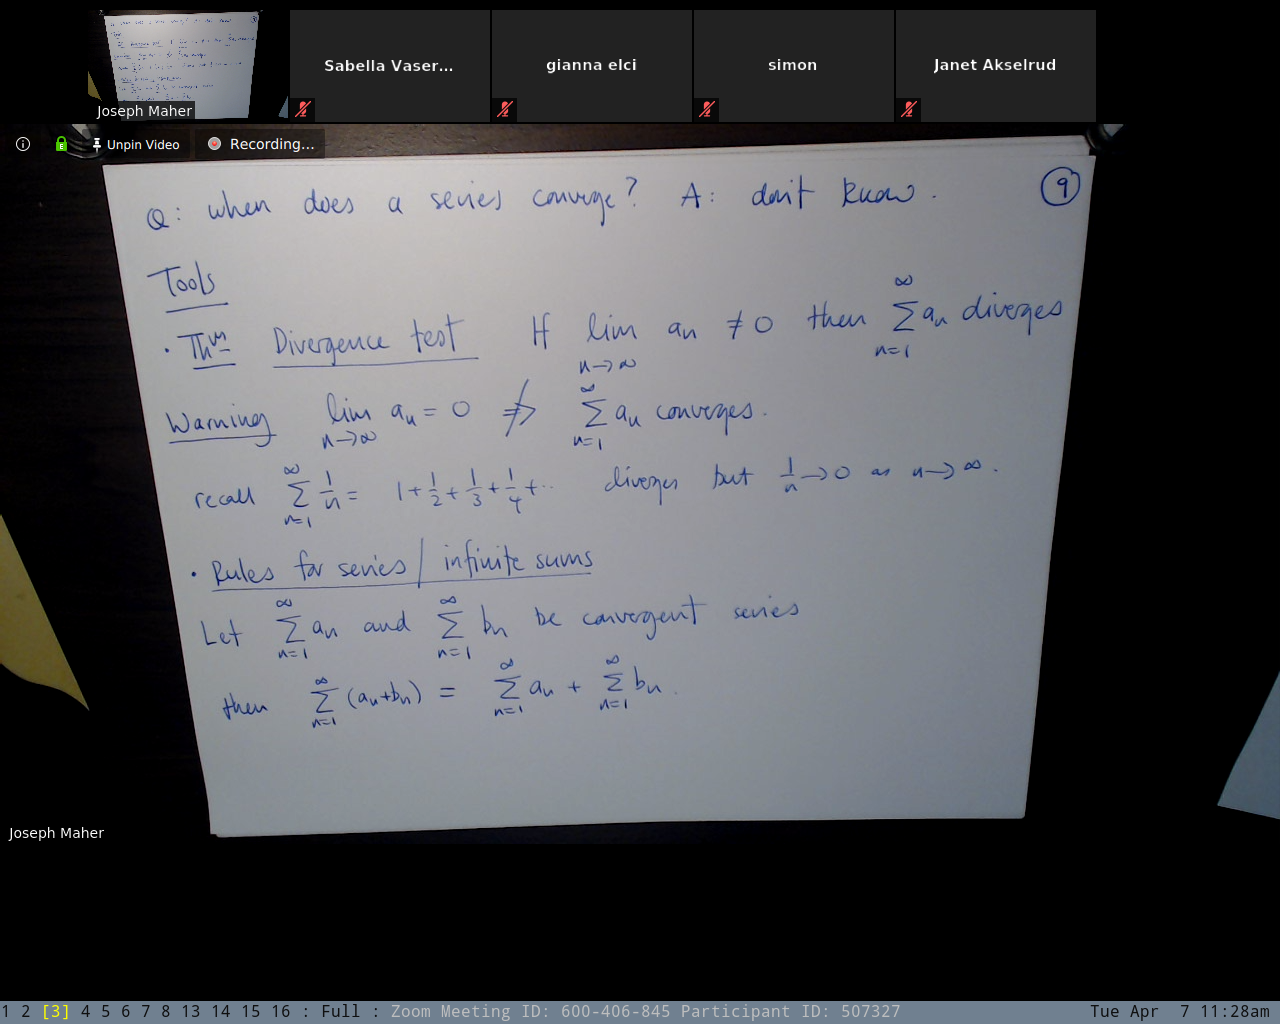 Joseph Maher
Sabella Vaser...
gianna elci
simon
Janet Akselrud
Unpin Video
Recording...
Q: when does a series converge? A: don't know.
9
Tools
· Thm Divergence test If lim n→∞ an ≠ 0 then ∑ n=1 ∞ an diverges
Warning lim n→∞ an = 0 ⇏ ∑ n=1 ∞ an converges.
recall ∑ n=1 ∞ 1/n = 1 + 1/2 + 1/3 + 1/4 + ·· diverges but 1/n → 0 as n → ∞.
· Rules for series / infinite sums
Let ∑ n=1 ∞ an and ∑ n=1 ∞ bn be convergent series
then ∑ n=1 ∞ (an+bn) = ∑ n=1 ∞ an + ∑ n=1 ∞ bn.
Joseph Maher
1 2 [3] 4 5 6 7 8 13 14 15 16 : Full : Zoom Meeting ID: 600-406-845 Participant ID: 507327
Tue Apr 7 11:28am